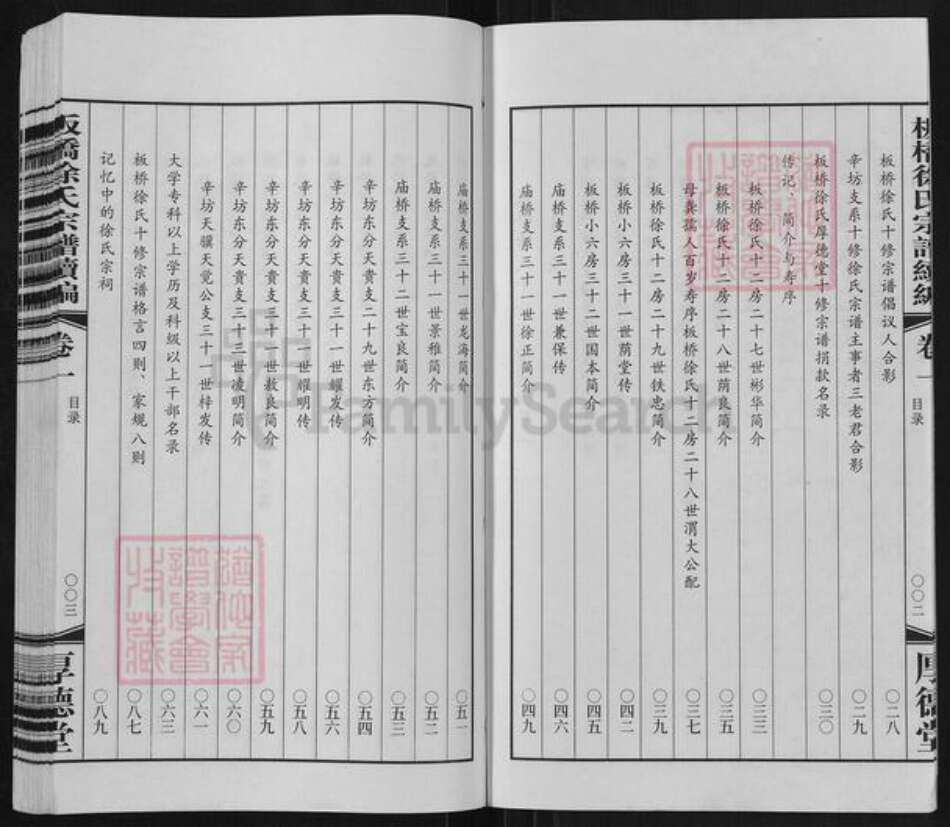 板橋徐氏宗譜續編
卷一
目录
〇〇二
厚德堂
板桥徐氏十修宗谱倡议人合影 〇二八
辛坊支系十修徐氏宗谱主事者三老君合影 〇二九
板桥徐氏厚德堂十修宗谱捐款名录 〇三〇
传记、简介与寿序
板桥徐氏十二房二十七世彬华简介 〇三三
板桥徐氏十二房二十八世荫良简介 〇三五
母龚孺人百岁寿序板桥徐氏十二房二十八世渭大公配 〇三七
板桥徐氏十二房二十九世铁忠简介 〇三九
板桥小六房三十一世荫堂传 〇四二
板桥小六房三十二世国本简介 〇四五
庙桥支系三十一世兼保传 〇四六
庙桥支系三十一世徐正简介 〇四九
庙桥支系三十一世龙海简介 〇五一
庙桥支系三十一世景雅简介 〇五二
庙桥支系三十二世宝良简介 〇五三
辛坊东分天贵支二十九世东方简介 〇五四
辛坊东分天贵支三十一世耀发传 〇五六
辛坊东分天贵支三十一世耀明传 〇五八
辛坊东分天贵支三十一世敖良简介 〇五九
辛坊东分天贵支三十三世凌明简介 〇六〇
辛坊天骥天觉公支三十一世梓发传 〇六一
大学专科以上学历及科级以上干部名录 〇六三
板桥徐氏十修宗谱格言四则、家规八则 〇八七
记忆中的徐氏宗祠 〇八九
板橋徐氏宗譜續編
卷一
目录
〇〇三
厚德堂
譜學會
收藏
FamilySearch